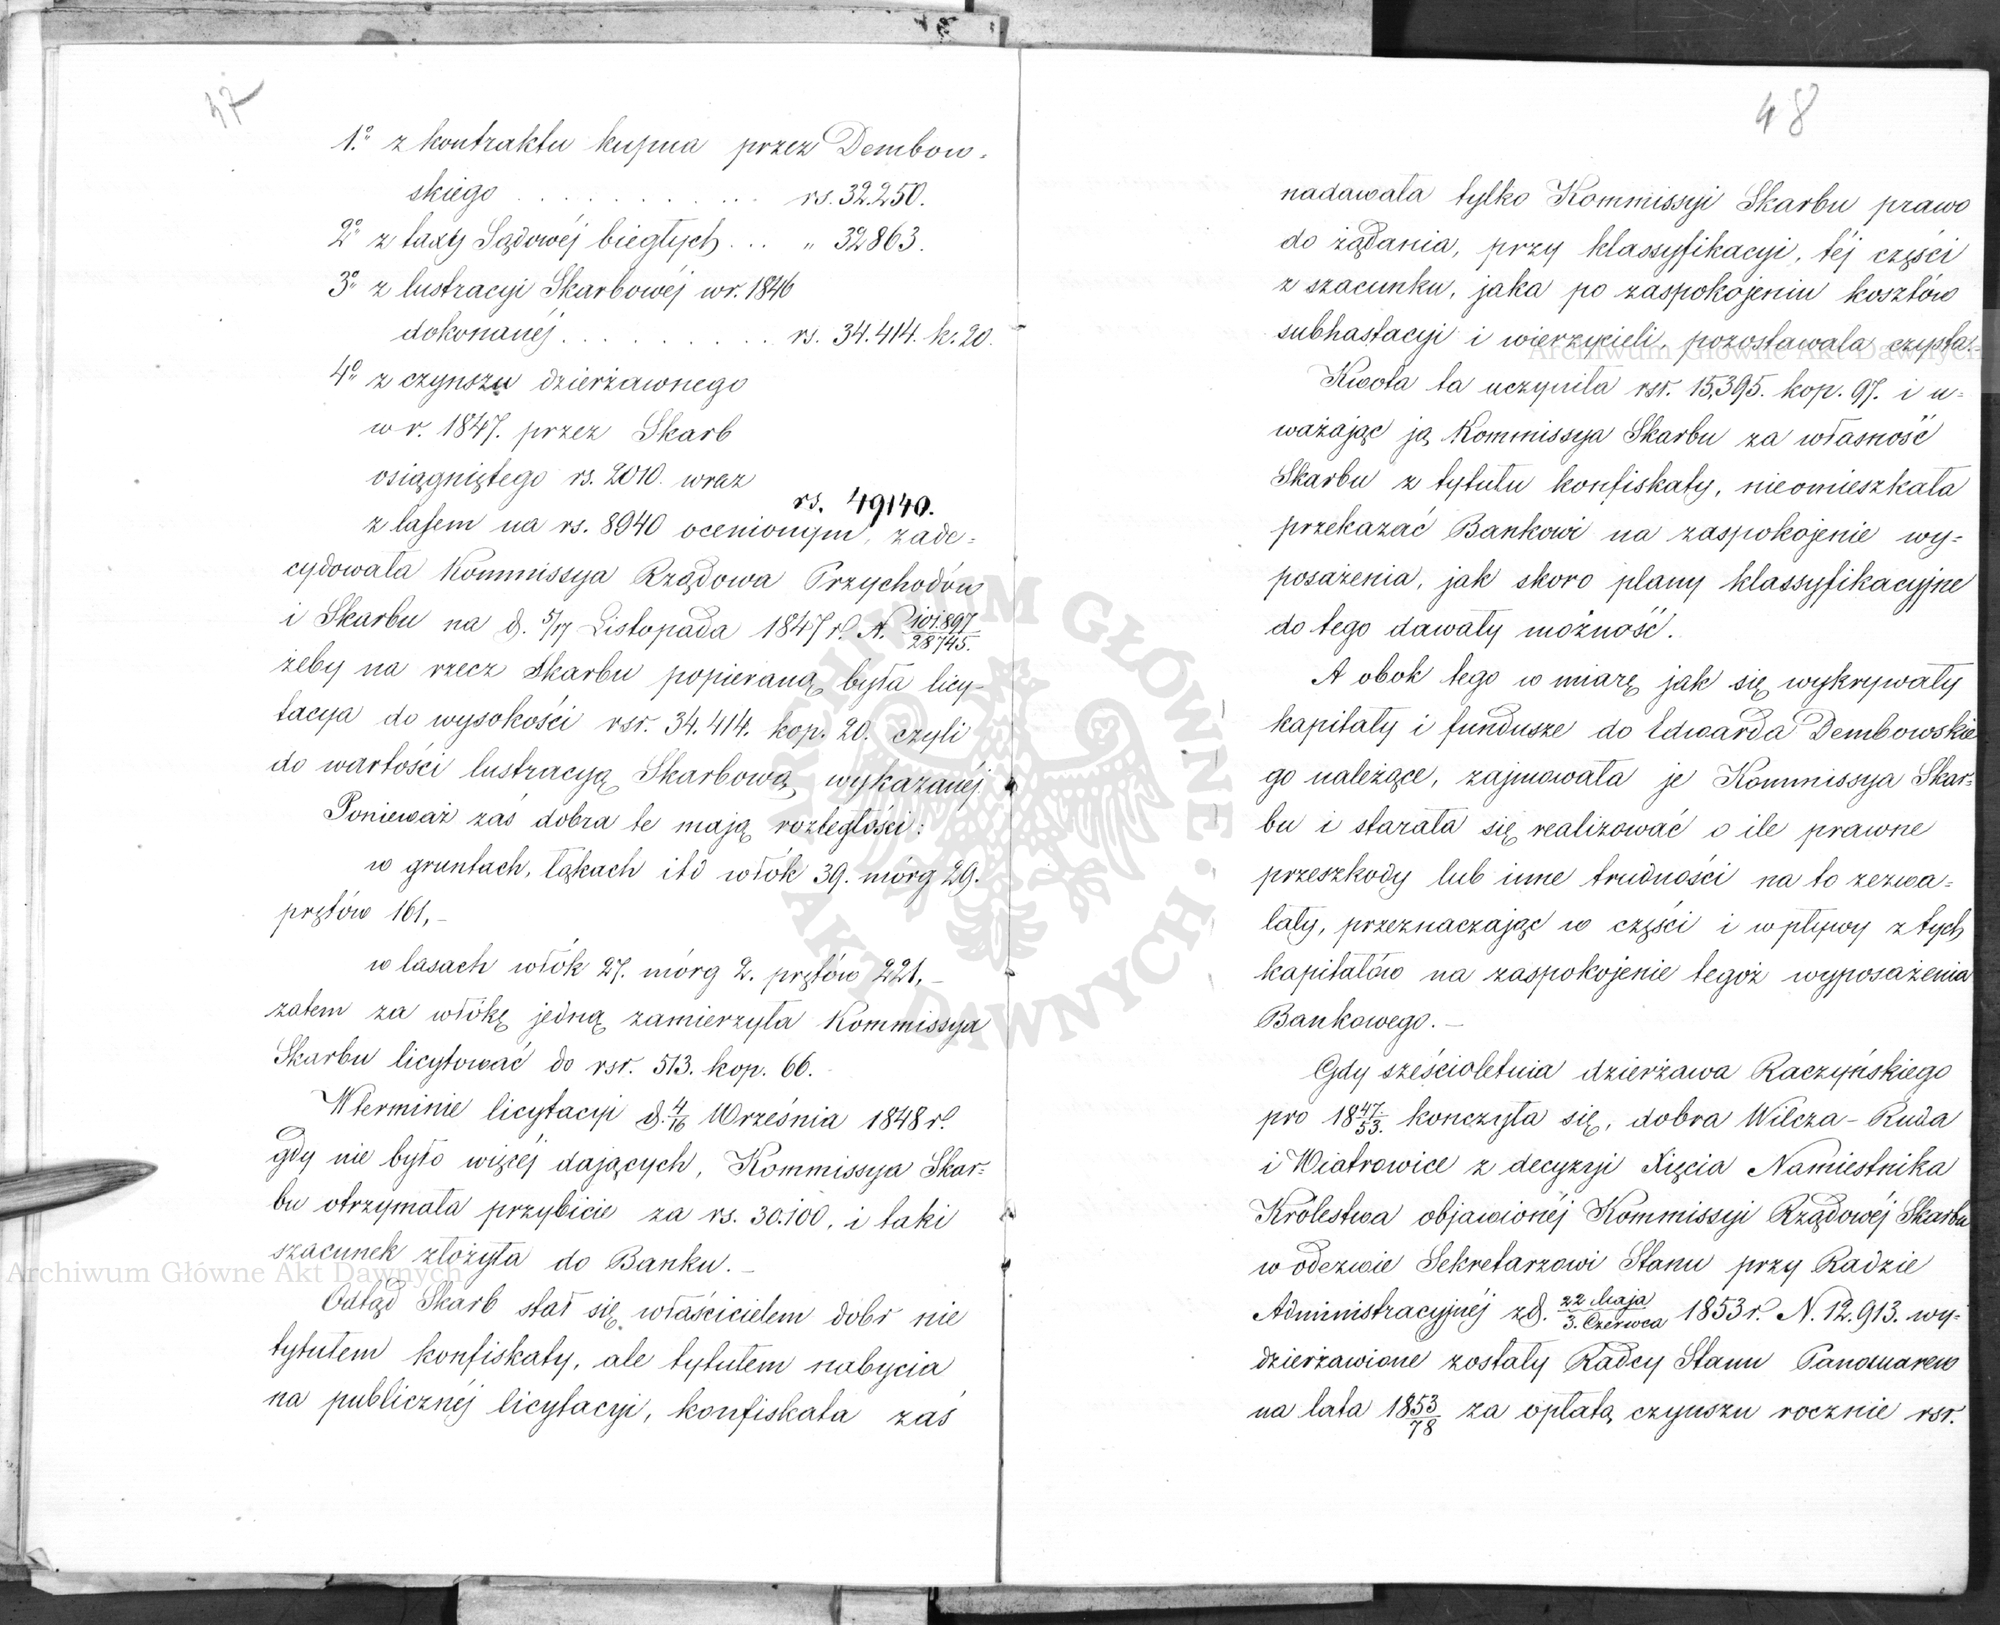 47
1º z kontraktu kupna przez Dembow-
skiego . . . . . . . . . . . rs. 32.250.
2º z taxy Sądowéj biegłych . . . „ 32863.
3º z lustracyi Skarbowéj w r. 1846
dokonanéj . . . . . . . . . rs. 34.414. k. 20.
4º z czynszu dzierżawnego
w r. 1847. przez Skarb
osiągniętego rs. 2010. wraz
rs. 49140.
z lasem na rs. 8940 ocenionym, zade-
cydowała Kommissya Rządowa Przychodów
i Skarbu na d. 5/17 Listopada 1847 r. N. 101.897/28745.
żeby na rzecz Skarbu popieraną była licy-
tacya do wysokości rsr. 34.414. kop. 20. czyli
do wartości lustracyą Skarbową wykazanéj.
Ponieważ zaś dobra te mają rozległości:
w gruntach, łąkach itd włók 39. mórg 29.
prętów 161,-
w lasach włók 27. mórg 2. prętów 221,-
zatem za włókę jedną zamierzyła Kommissya
Skarbu licytować do rsr. 513. kop. 66.
W terminie licytacyi d. 4/16 Września 1848 r.
gdy nie było więcéj dających, Kommissya Skar-
bu otrzymała przybicie za rs. 30.100, i taki
szacunek złożyła do Banku.-
Odtąd Skarb stał się właścicielem dobr nie
tytułem konfiskaty, ale tytułem nabycia
na publicznéj licytacyi, konfiskata zaś
48
nadawała tylko Kommissyi Skarbu prawo
do żądania, przy klassyfikacyi, téj części
z szacunku, jaka po zaspokojeniu kosztów
subhastacyi i wierzycieli, pozostawała czysta.-
Kwota ta uczyniła rsr. 15,395. kop. 97. i u-
ważając ją Kommissya Skarbu za własność
Skarbu z tytułu konfiskaty, nieomieszkała
przekazać Bankowi na zaspokojenie wy-
posażenia, jak skoro plany klassyfikacyjne
do tego dawały możność.
A obok tego w miarę jak się wykrywały
kapitały i fundusze do Edwarda Dembowskie
go należące, zajmowała je Kommissya Skar-
bu i starała się realizować o ile prawne
przeszkody lub inne trudności na to zezwa-
lały, przeznaczając w części i wpływy z tych
kapitałów na zaspokojenie tegoż wyposażenia
Bankowego.-
Gdy sześcioletnia dzierżawa Raczyńskiego
pro 1847/53. kończyła się, dobra Wilcza-Ruda
i Wiatrowice z decyzyi Xięcia Namiestnika
Królestwa objawionéj Kommissyi Rządowéj Skarbu
w odezwie Sekretarzowi Stanu przy Radzie
Administracyjnéj z d. 22 Maja/3. Czerwca 1853 r. N. 12.913. wy-
dzierżawione zostały Radcy Stanu
na lata 1853/78 za opłatą czynszu rocznie rsr.
Archiwum Główne Akt Dawnych
Archiwum Główne Akt Dawnych
ARCHIWUM GŁÓWNE AKT DAWNYCH